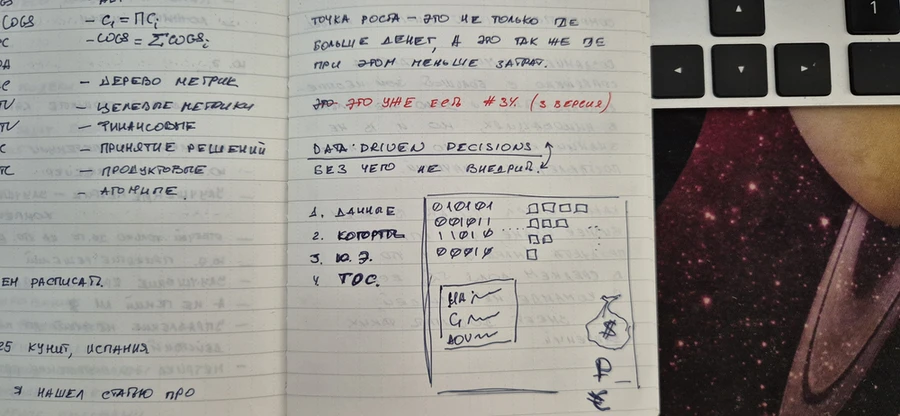 COGS
– C₁ = ПC_i
– COGS = ΣCOGS_i
– ДЕРЕВО МЕТРИК
– ЦЕЛЕВЫЕ МЕТРИКИ
– ФИНАНСОВЫЕ
– ПРИНЯТИЕ РЕШЕНИЙ
– ПРОДУКТОВЫЕ
– АТОМНЫЕ
ЕМ РАСПИСАТЬ
25 КУНИТ, ИСПАНИЯ
Я НАШЕЛ СТАТЬЮ ПРО
ТОЧКА РОСТА – ЭТО НЕ ТОЛЬКО ГДЕ
БОЛЬШЕ ДЕНЕГ, А ЭТО ТАК ЖЕ ГДЕ
ПРИ ЭТОМ МЕНЬШЕ ЗАТРАТ.
ЭТО УЖЕ ЕСТЬ #34. (3 ВЕРСИЯ)
DATA DRIVEN DECISIONS
БЕЗ ЧЕГО НЕ ВНЕДРИТЬ.
1. ДАННЫЕ
2. КОГОРТЫ
3. Ю.Э.
4. ТОС.
010101
001011
11010
00010
UA
C₁
AOV
$
1